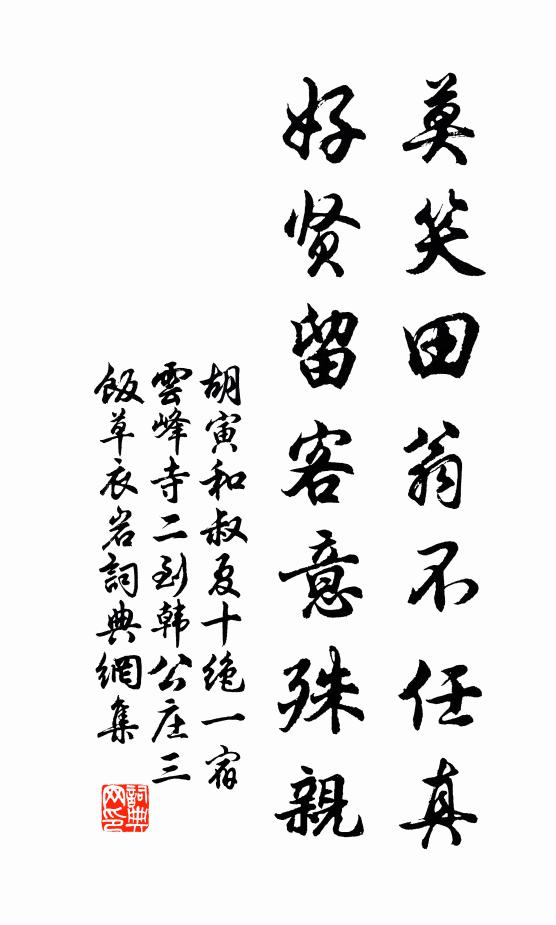 莫笑田翁不任真
好贤留客意殊親
胡寅和叔夏十绝一宿
雲峰寺二到韩公庄三
飯草衣岩詞典網集
詞典网印